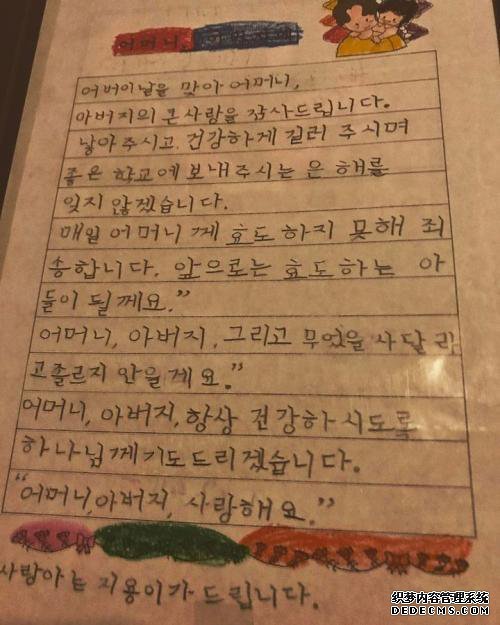 어머니,
어버이날을 맞아 어머니,
아버지의 큰사랑을 감사드립니다.
낳아주시고 건강하게 길러 주시며
좋은 학교에 보내주시는 은 혜를
잊지 않겠습니다.
매일 어머니 께 효도 하지 못해 죄
송합니다. 앞으로는 효도하는 아
들이 될께요."
어머니, 아버지, 그리고 무엇을 사달라
고졸르지 안을게요."
어머니, 아버지, 항상 건강하시도록
하나님께기도드리겠습니다.
"어머니,아버지, 사랑해요."
사랑하는 지용이가 드립니다.
织梦内容管理系统
DEDECMS.COM